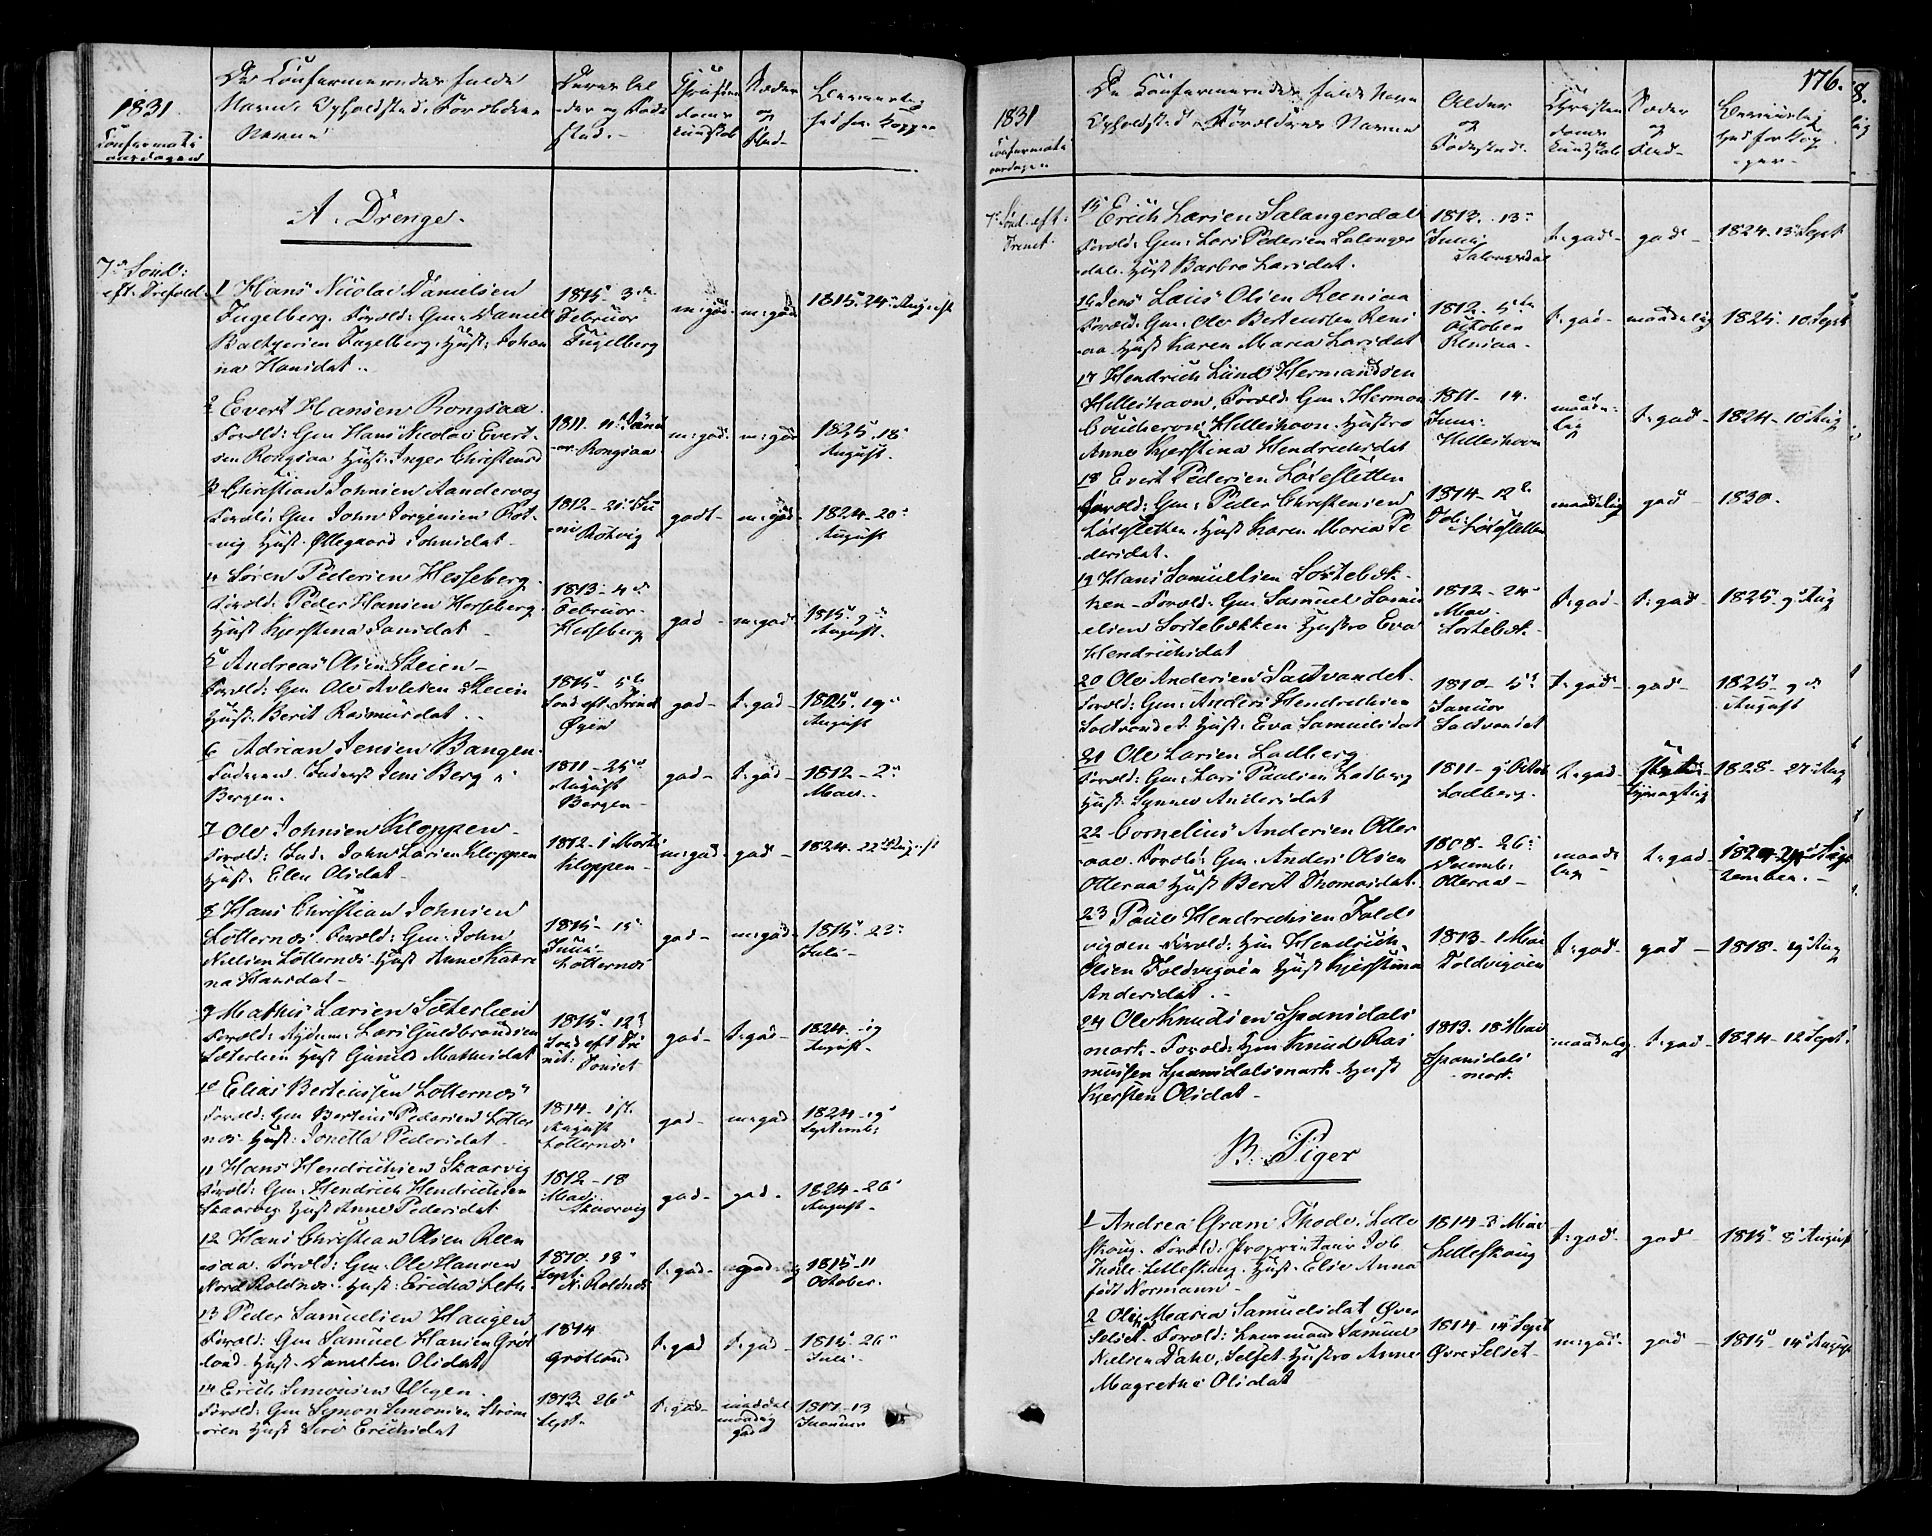 1831
Confirmati-
onsdagen
De Confirmeredes fulde
Navne, Opholdsted, Forældrenes
Navne
og Føde
sted.
Christen
doms
kundskab
Sæder
og
Flid.
A. Drenge.
7de Sønd:
eft. Trefold.
1 Hans Nicolai Danielsen
Fugelberg. Foræld: Gm: Daniel
Baltzersen Fugelberg. Hust: Johan
na Hansdat.
1815. 3de
Februar
Fugelberg
m:god
m:god
1815. 24 August
2 Evert Hansen Rongsaa.
Foræld: Gm Hans Nicolai Evert-
sen Rongsaa Hust. Inger Christensd
1811. 11te Janu
ar Rongsaa
m:god
m:god
1825. 18
August.
3 Christian Johnsen Aandervog
Foræld: Gm John Jorgensen Rot-
vig Hust. Øllegaard Johnsdat.
1812 - 21 Ju
ni Rotvig
godt
m:god
1824 - 20
August
4 Søren Pedersen Hesseberg.
Foræld: Peder Hansen Hesseberg.
Hust Kjerstina Jansdat
1813 - 4de
Februar.
Hesseberg
god
m:god
1815 9de
August.
5 Andreas Olsen Steien
Foræld: Gm Ole Steien
Hust. Berit Rasmusdat.
1815 - 5te
Sønd. eft. Trinit
god
t:god
1825. 19
August
6 Adrian Jensen Bangen
Faderen Inderst Jens Berg i
Bergen.
1811 - 25de
August
Bergen
god
t:god
1812 - 2
Mai.
7 Ole Johnsen Kloppen
Foræld: Ind. John Larsen Kloppen
Hust. Elen Olsdat
1812 - 1 Marti
Kloppen
m:god
god
1824 - 22 August
8 Hans Christian Johnsen
Lotternes. Foræld: Gm: John
Nielsen Lotternes. Hust Anne Katri
na Hansdat
1815 - 15
Juni
Lotternes
god
m:god
1815. 23
Juli
9 Mathis Larsen Sæterlien
Foræld: Rydnm: Lars Guldbrandsen
Sæterlien Hust Gunild Mathisdat
1815. 12te
Sønd eft Tri
nit: Tonset
god
t:god
1824 - 19
August
10 Elias Berteussen Lotternes
Foræld: Gm Berteus Pedersen Lotter
nes Hust: Jonetta Pedersdat
1814 - 1st.
August
Lotternes
god
m:god
1824 - 19
Septemb:
11 Hans Hendrichsen Skaarvig
Foræld: Gm. Hendrich Hendrichsen
Skaarvig Hust Anne Pedersdat
1812 - 18
Mai
Skaarvig
god
god
1824 - 26
August
12 Hans Christian Olsen Reen
saa. Foræld: Gm. Ole Hansen
Nord Roldnes. Hust. Ericka
1810 - 18
Sept.
N. Roldnes
t:god
1815 - 11
October.
13 Peder Samuelsen Haugen
Foræld: Gm Samuel Hansen Grøt
land. Hust. Olsdat
1814
Grotland
t:god
t:god
1815 - 26
Juli
14 Erich Simonsen Wegen
Foræld: Gm Simon Simonsen Strøm
oren Hust. Siri Erichsdat
1813 - 26de
Sept.
t:god
god
1817 - 13
Januar
176.
1831
Confirmati
onsdagen
De Confirmeredes fulde Navn
Opholdsted, Forældrenes Navne
Alder
og
Fødested.
Christen
doms
kundskab
Sæder
og
Flid
7 Sønd. eft:
Trinit.
15 Erich Larsen Salangerdal
Foræld: Gm: Lars Pedersen Salanger
dal. Hust Barbro Larsdat.
1813. 13
Juni
Salangerdal
t:god
god
1824. 13 Sept
16 Jens Laus Olsen Reensaa
Foræld: Gm: Ole Berteussen Rens
aa. Hust Karen Maria Larsdat
1812. 5te
October
Rensaa.
t:god
maadelig
1825. 10 Sept
17 Hendrich Lund Hermandsen
Hilleshavn. Foræld: Gm: Herman
Coucheron Hilleshavn. Hustro
Anne Kjerstina Hendrichsdat
1811 - 14
Juni
Hilleshavn
maade-
lig
t:god
1824 - 10 Aug
18 Evert Pedersen Løksletten
Foræld: Gm: Peder Christensen
Løksletten. Hust Karen Maria Pe
dersdat.
1814 - 12te
Løksletten
maadelig
god
1830.
19 Hans Samuelsen Sortebæk-
ken - Foræld: Gm: Samuel Samu
elsen Sortebækken Hustro Eva
Hendrichsdat
1812 - 24de
Mai
Sortebæk.
t:god
t:god
1825 9 Aug
20 Ole Andersen Saltvandet.
Foræld: Gm: Anders Hendrichsen
Saltvandet. Hust. Eva Samuelsdat
1810 - 5te
Januar
Saltvandet
t:god
god
1825 - 9de
August
21 Ole Larsen Ladberg
Foræld: Gm: Lars Paulsen Ladberg
Hust. Synnev Andersdat
1811 - 9 Octob
Ladberg.
t:god
1828 - 27 Aug
22 Cornelius Andersen Otter
aae. Foræld: Gm. Anders Olsen
Otteraa Hust Berit Thomasdat.
1808 - 26
Otteraa
maade
lig
t:god
23 Paul Hendrichsen Fold-
vigøen. Foræld: Hm Hendrich
Olsen Foldvigøen Hust Kjerstina
Andersdat.
1813 - 1 Mai
Foldvigøen
t:god
god
1818 - 19 Aug
24 Ole Knudsen Spansdals
mark. Foræld: Hm Knud Ras
mussen Spansdalsmark. Hust
Kjersten Olsdat
1813. 18 Mai
Spansdals
mark.
maadelig
t:god
1824 - 12 Sept
B. Piger
1 Andrea Gram Thode. Lille
skoug. Foræld: Proprietair Job
Thode Lilleskoug. Hust. Elise Anna
født Normann
1814 - 3 Mai
Lilleskoug
t:god
god
1815 8 August
2 Maria Samuelsdat Øvre
Selset. Foræld: Leuermand Samuel
Nielsen Dahl, Selset. Hustro Anne
Magrethe Olsdat
1814 - 14 Sept
Øvre Selset
m:god
god
1815 - 14 August